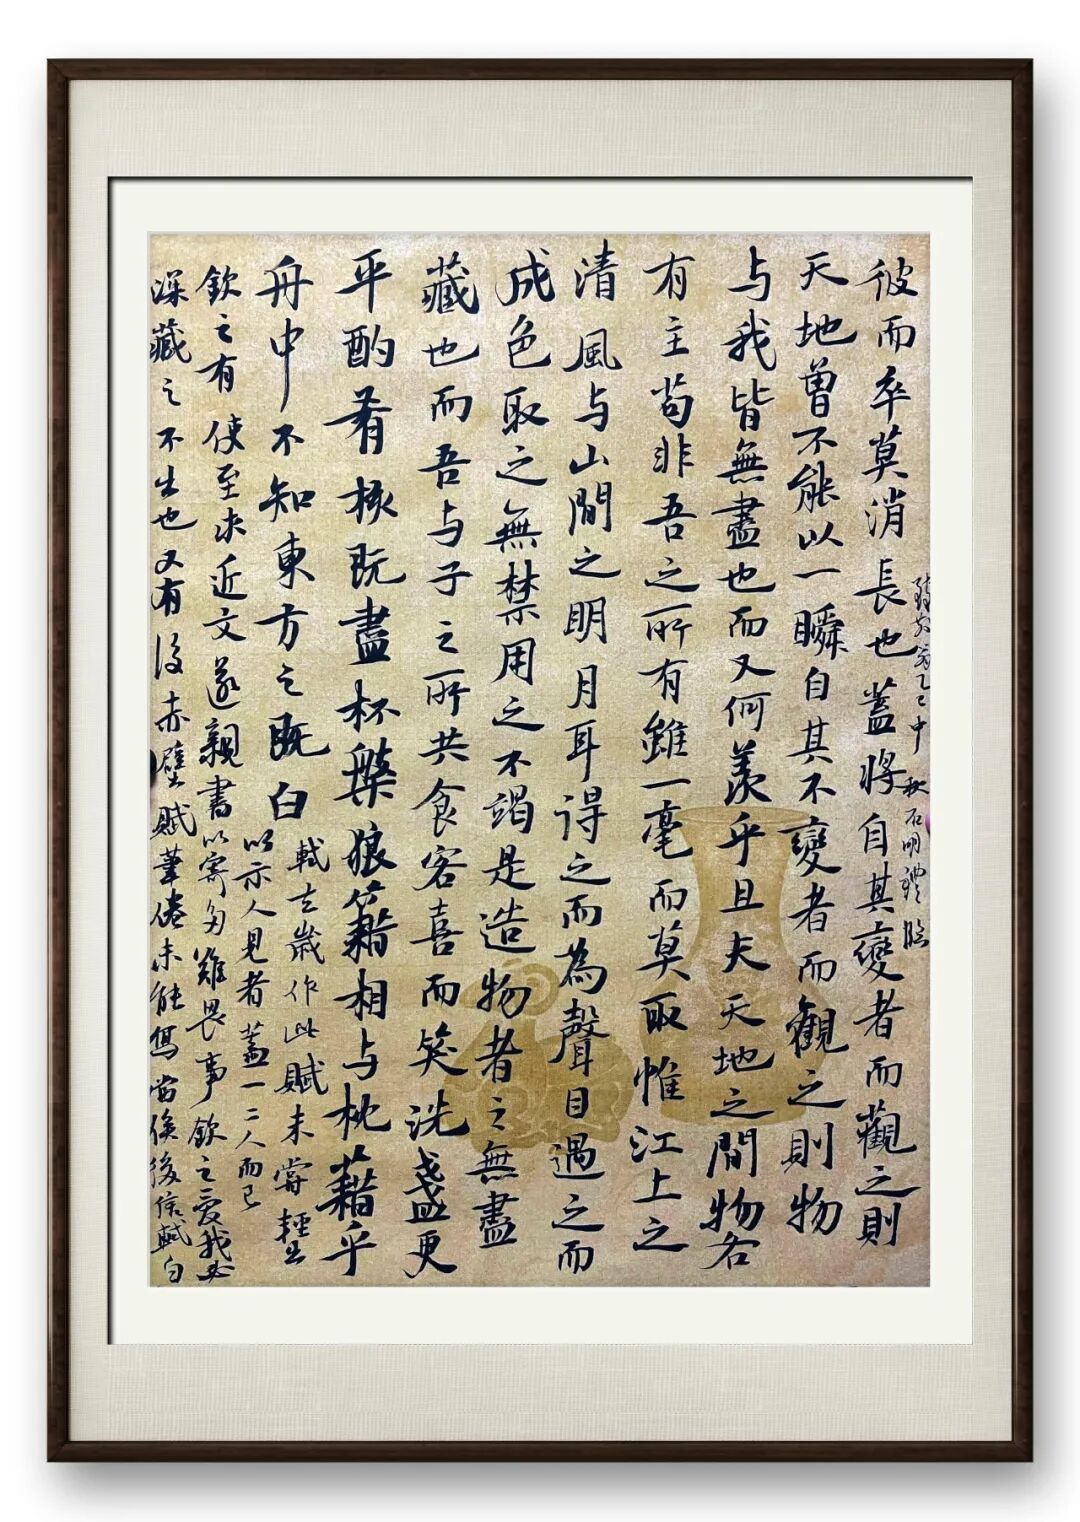 彼而卒莫消長也蓋將自其變者而觀之則
天地曾不能以一瞬自其不變者而觀之則物
与我皆無盡也而又何羨乎且夫天地之間物各
有主苟非吾之所有雖一毫而莫取惟江上之
清風与山間之明月耳得之而為聲目遇之而
成色取之無禁用之不竭是造物者之無盡
藏也而吾与子之所共食客喜而笑洗盞更
平酌肴核既盡杯槃狼籍相与枕藉乎
舟中不知東方之既白
軾去歲作此賦未嘗輕出
以示人見者蓋一二人而已
欽之有使至求近文遂親書以寄多難畏事欽之愛我必
深藏之不出也又有後赤壁賦筆倦未能寫當俟後信軾白
乙巳中秋石明禮臨